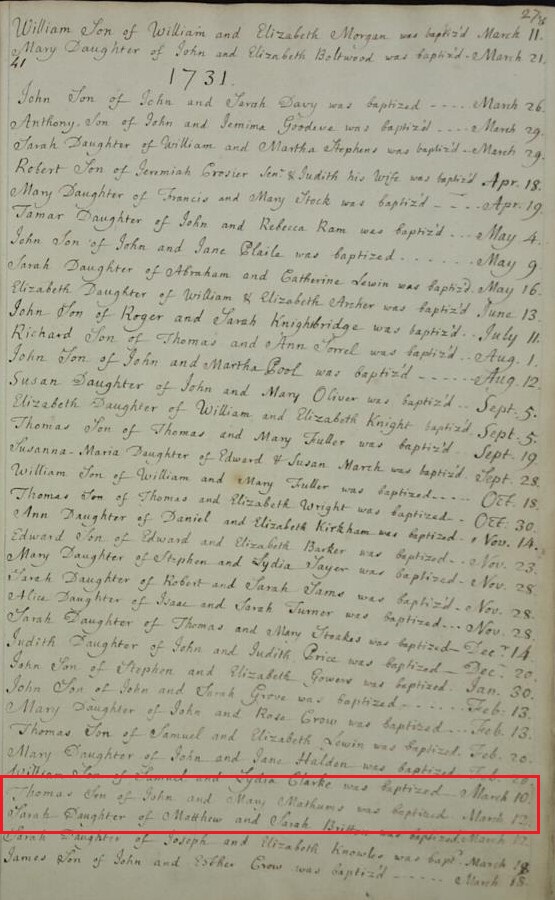 278
William Son of William and Elizabeth Morgan was baptiz'd March 11.
Mary Daughter of John and Elizabeth Boltwood was baptiz'd. March 21.
41
1731.
John Son of John and Sarah Davy was baptized ---- March 26.
Anthony Son of John and Jemima Goodeve was baptiz'd ---- March 29.
Sarah Daughter of William and Martha Stephens was baptiz'd - March 29.
Robert Son of Jermiah Crosier Senr. & Judith his Wife was baptiz'd Apr. 18.
Mary Daughter of Francis and Mary Stock was baptiz'd ---- Apr. 19.
Tamar Daughter of John and Rebecca Ram was baptiz'd --- May 4.
John Son of John and Jane Plaile was baptized ------- May 9.
Sarah Daughter of Abraham and Catherine Lewin was baptiz'd. May 16.
Elizabeth Daughter of William & Elizabeth Archer was baptiz'd June 13.
John Son of Roger and Sarah Knightbridge was baptiz'd. July 11.
Richard Son of Thomas and Ann Sorrel was baptiz'd .. Aug. 1.
John Son of John and Martha Pool was baptiz'd ----- Aug. 12.
Susan Daughter of John and Mary Oliver was baptiz'd .. Sept. 5.
Elizabeth Daughter of William and Elizabeth Knight baptiz'd Sept. 5.
Thomas Son of Thomas and Mary Fuller was baptiz'd. Sept. 19.
Susanna-Maria Daughter of Edward & Susan March was baptiz'd Sept. 28.
William Son of William and Mary Fuller was baptized ---- Oct. 18.
Thomas Son of Thomas and Elizabeth Wright was baptized -- Oct. 30.
Ann Daughter of Daniel and Elizabeth Kirkham was baptized. Nov. 14.
Edward Son of Edward and Elizabeth Barker was baptized -- Nov. 23.
Mary Daughter of Stephen and Lydia Sayer was baptized - Nov. 28.
Sarah Daughter of Robert and Sarah Sams was baptiz'd - Nov. 28.
Alice Daughter of Isaac and Sarah Turner was baptized --- Nov. 28.
Sarah Daughter of Thomas and Mary Stoakes was baptized - Decr. 14.
Judith Daughter of John and Judith Price was baptized - Decr. 20.
John Son of Stephen and Elizabeth Gowers was baptized. Jan. 30.
John Son of John and Sarah Grove was baptized ----- Feb. 13.
Mary Daughter of John and Rose Crow was baptized --- Feb. 13.
Thomas Son of Samuel and Elizabeth Lewin was baptized. Feb. 20.
Mary Daughter of John and Jane Haldon was baptized
William Son of Samuel and Lydia Clarke was baptized March 10.
Thomas Son of John and Mary Mathums was baptized March 12.
Sarah Daughter of Matthew and Sarah Britton was baptized March 12.
Sarah Daughter of Joseph and Elizabeth Knowles was bapt. March 18
James Son of John and Esther Crow was baptiz'd ------ March 18.